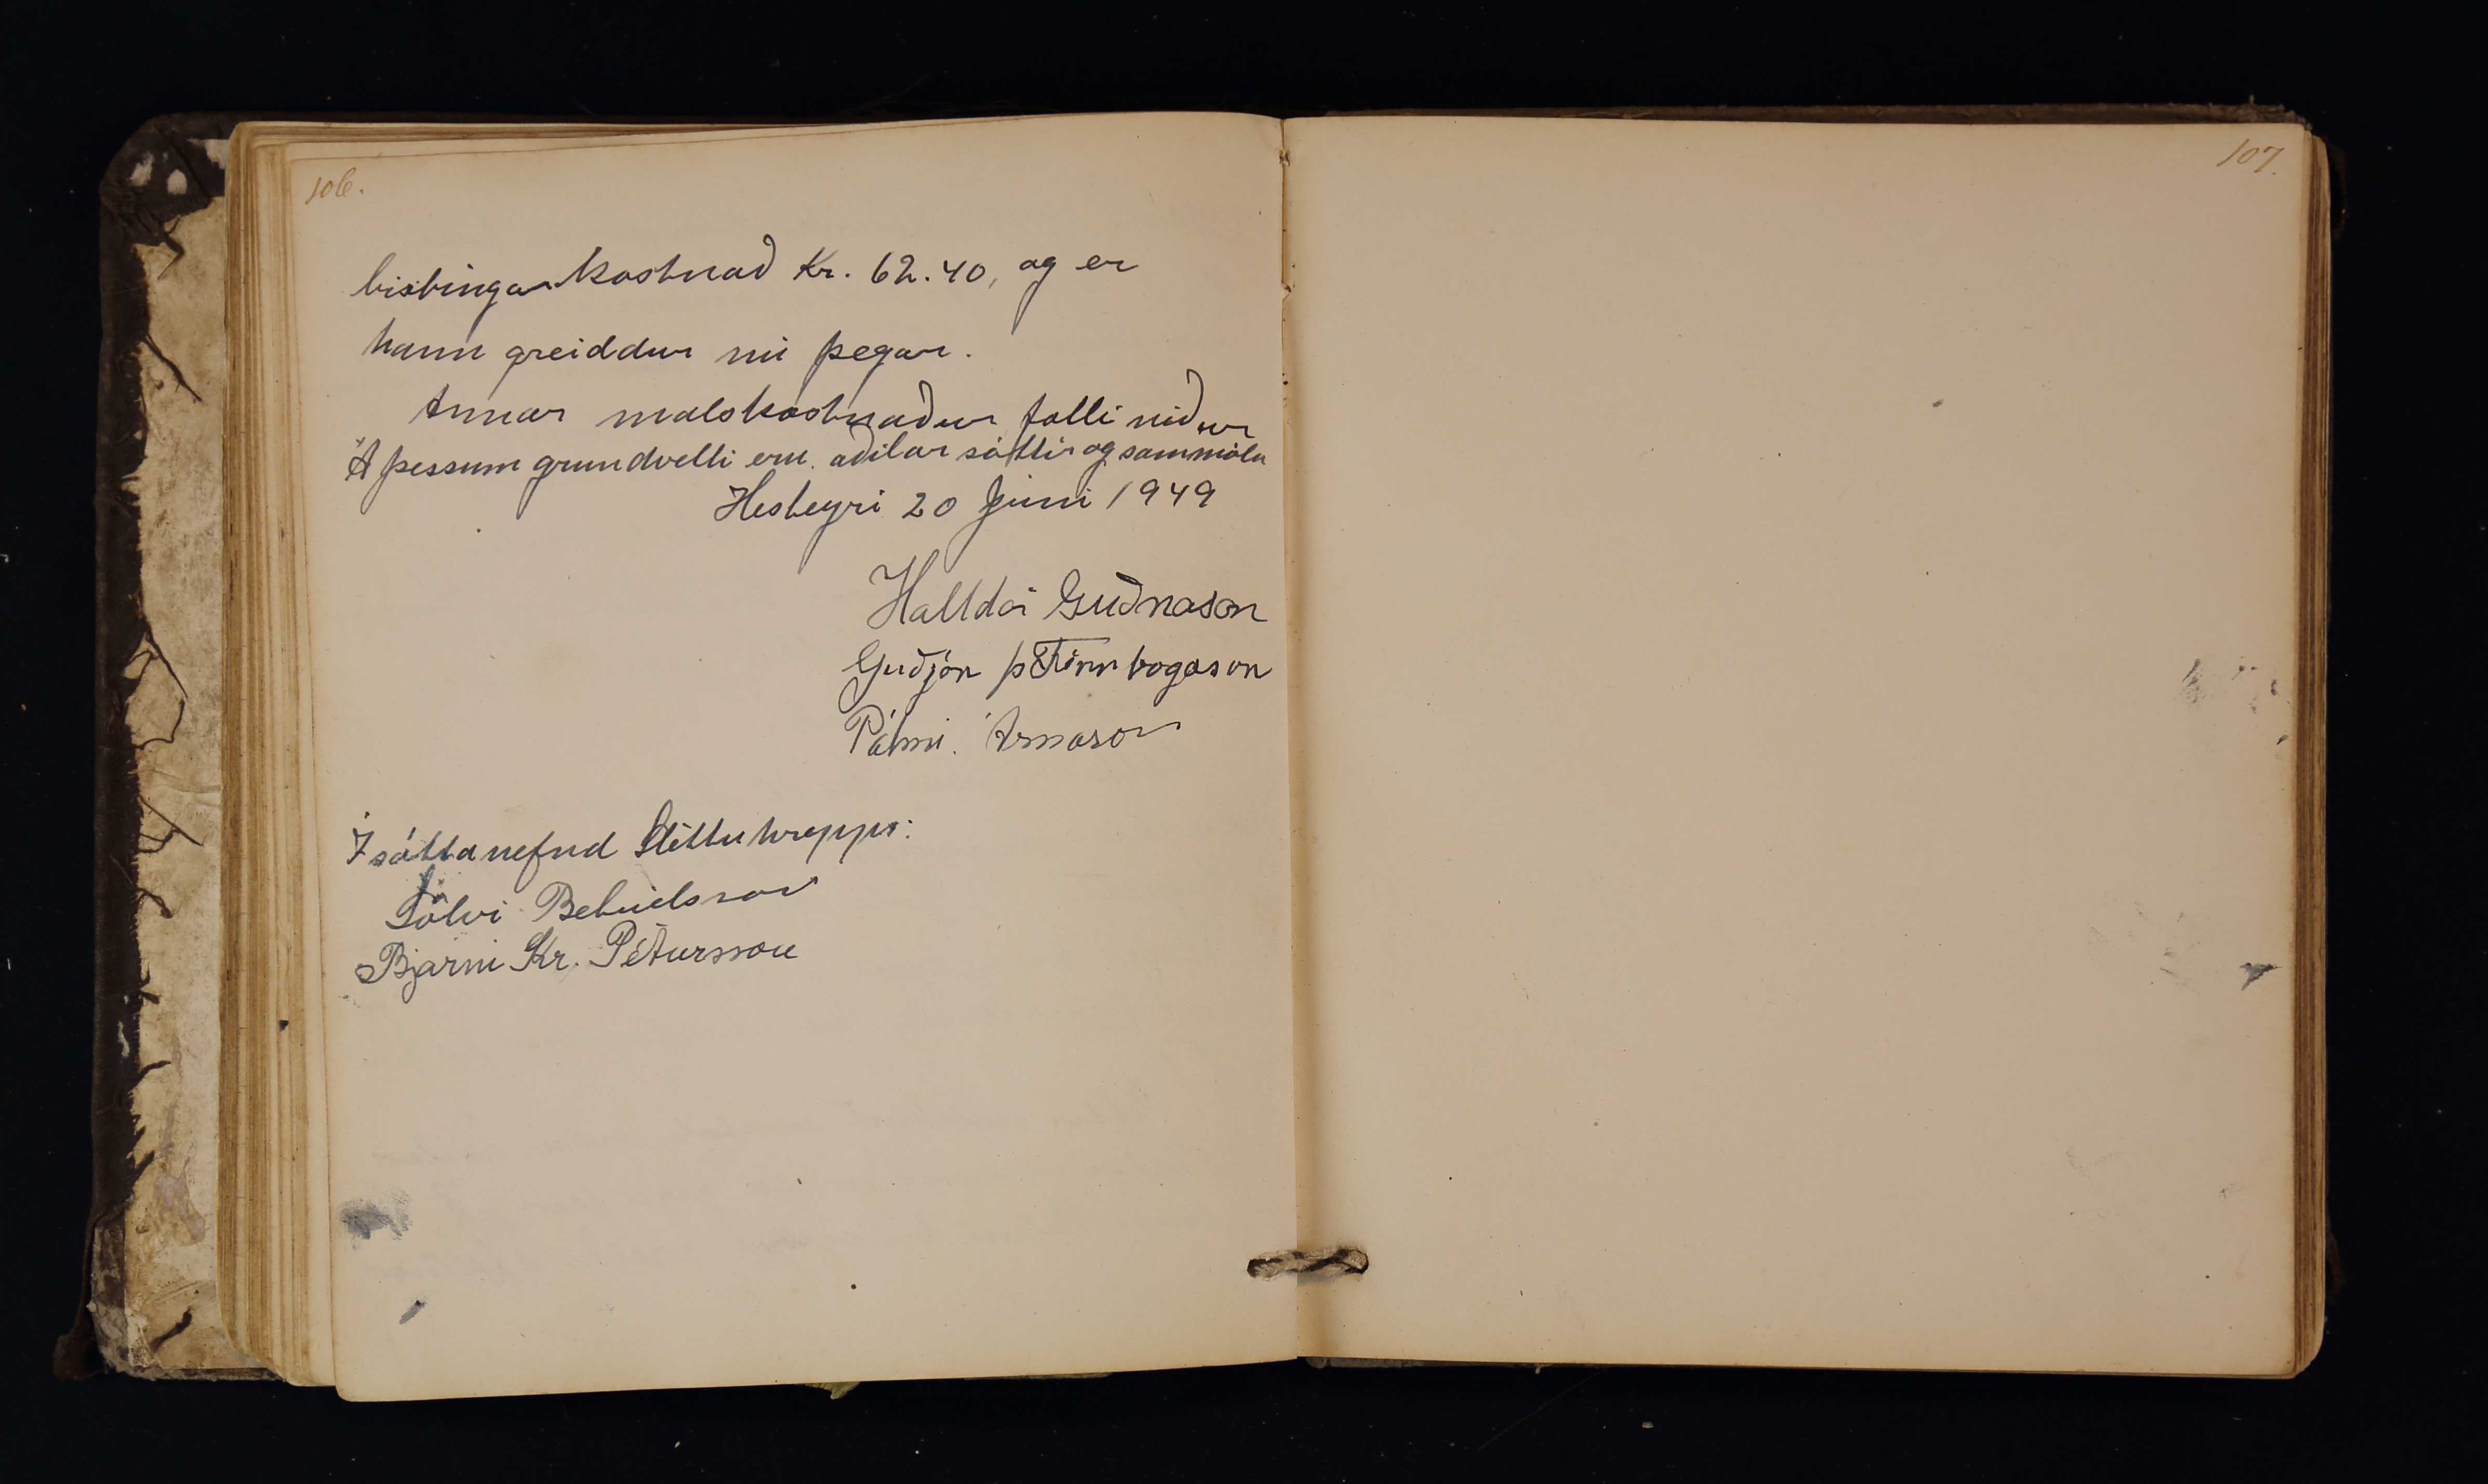 106.
birtingarkostnað Kr. 62.40, og er
hann greiddur nú þegar.
Annar malskostnaður falli niður
Á þessum grundvelli eru aðilar sáttir og sammála
Hesteyri 20 Júní 1949
Halldór Guðnason
Guðjón Þ Finnbogason
Pálmi. Árnason
Í sáttanefnd Sléttuhrepps:
Sölvi Betúelsson
Bjarni Kr. Pétursson
107.